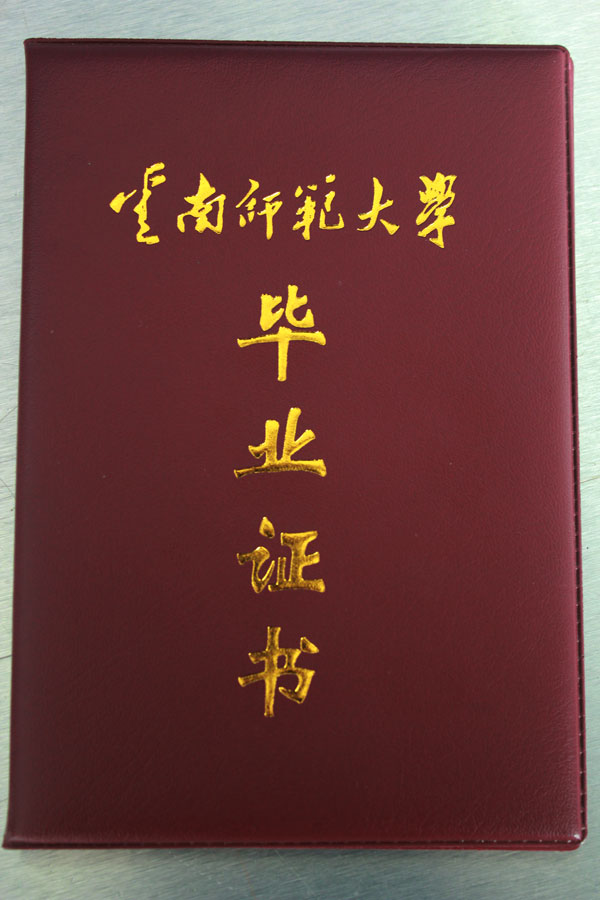 雲南師範大學
毕业证书